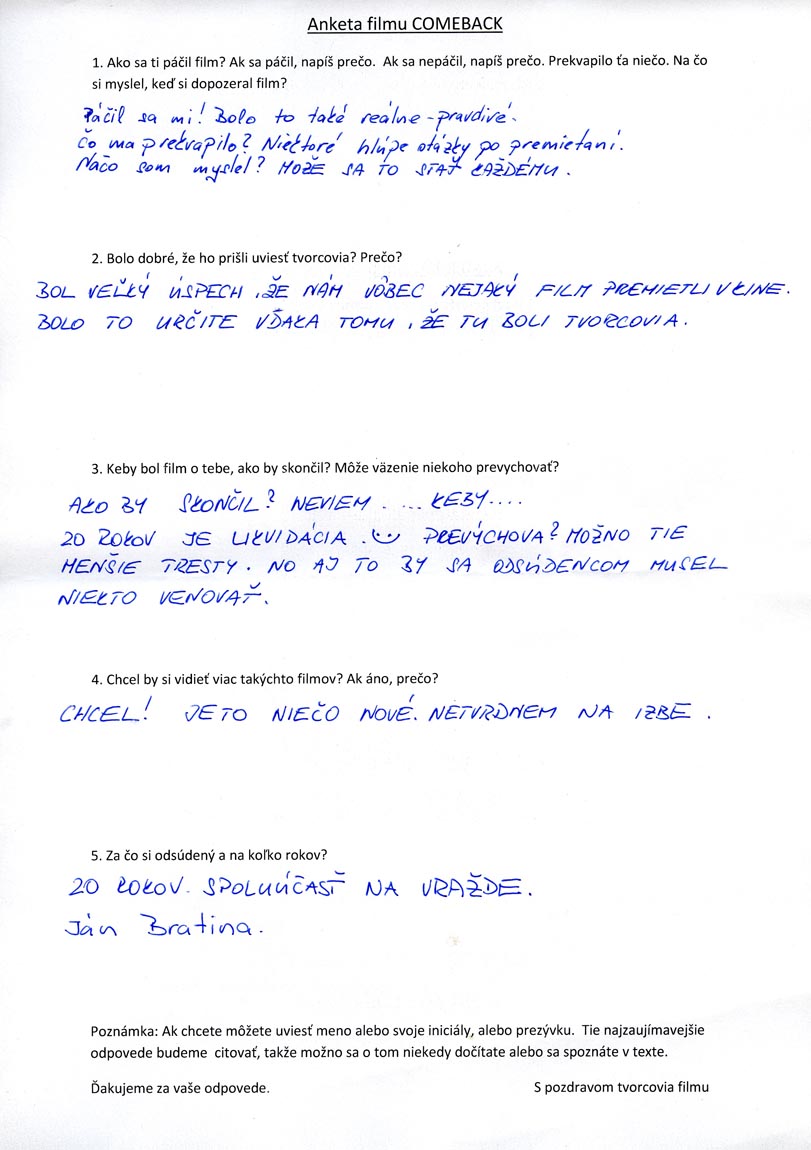 Anketa filmu COMEBACK
1. Ako sa ti páčil film? Ak sa páčil, napíš prečo. Ak sa nepáčil, napíš prečo. Prekvapilo ťa niečo. Na čo
si myslel, keď si dopozeral film?
Páčil sa mi! Bolo to také reálne-pravdivé.
Čo ma prekvapilo? Niektoré hlúpe otázky po premietaní.
Načo som myslel? MOŽE SA TO STAŤ KAŽDÉMU.
2. Bolo dobré, že ho prišli uviesť tvorcovia? Prečo?
BOL VEĽKÝ ÚSPECH, ŽE NÁM VÔBEC NEJAKÝ FILM PREMIETLI V KINE.
BOLO TO URČITE VĎAKA TOMU, ŽE TU BOLI TVORCOVIA.
3. Keby bol film o tebe, ako by skončil? Môže väzenie niekoho prevychovať?
AKO BY SKONČIL? NEVIEM. ... KEBY....
20 ROKOV JE LIKVIDÁCIA. PREVÝCHOVA? MOŽNO TIE
MENŠIE TRESTY. NO AJ TO BY SA ODSÚDENCOM MUSEL
NIEKTO VENOVAŤ.
4. Chcel by si vidieť viac takýchto filmov? Ak áno, prečo?
CHCEL! JE TO NIEČO NOVÉ. NETVRDNEM NA IZBE.
5. Za čo si odsúdený a na koľko rokov?
20 ROKOV. SPOLUÚČASŤ NA VRAŽDE.
Ján Bratina.
Poznámka: Ak chcete môžete uviesť meno alebo svoje iniciály, alebo prezývku. Tie najzaujímavejšie
odpovede budeme citovať, takže možno sa o tom niekedy dočítate alebo sa spoznáte v texte.
Ďakujeme za vaše odpovede. S pozdravom tvorcovia filmu